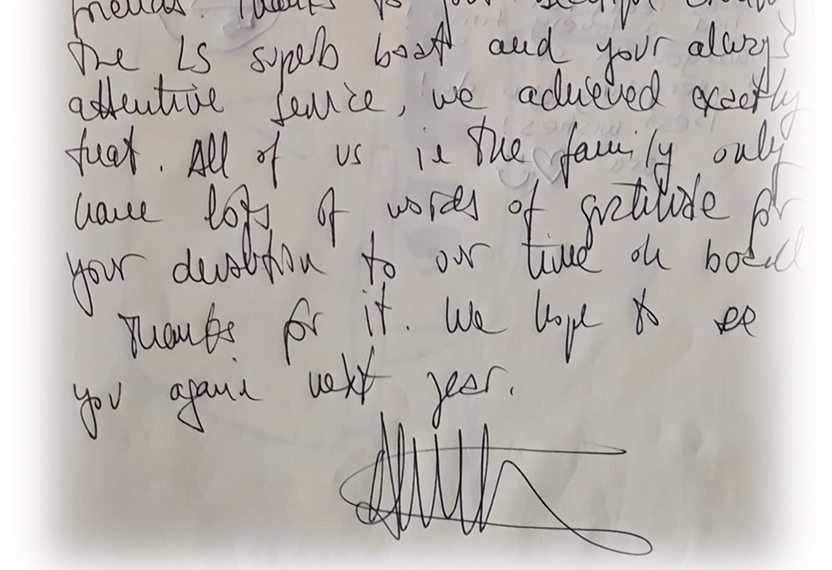 friends. Thanks to your
the LS superb boat and your always
attentive service, we achieved exactly
that. All of us in the family only
have lots of words of gratitude for
your devotion to our time on board
Thanks for it. We hope to see
you again next year.